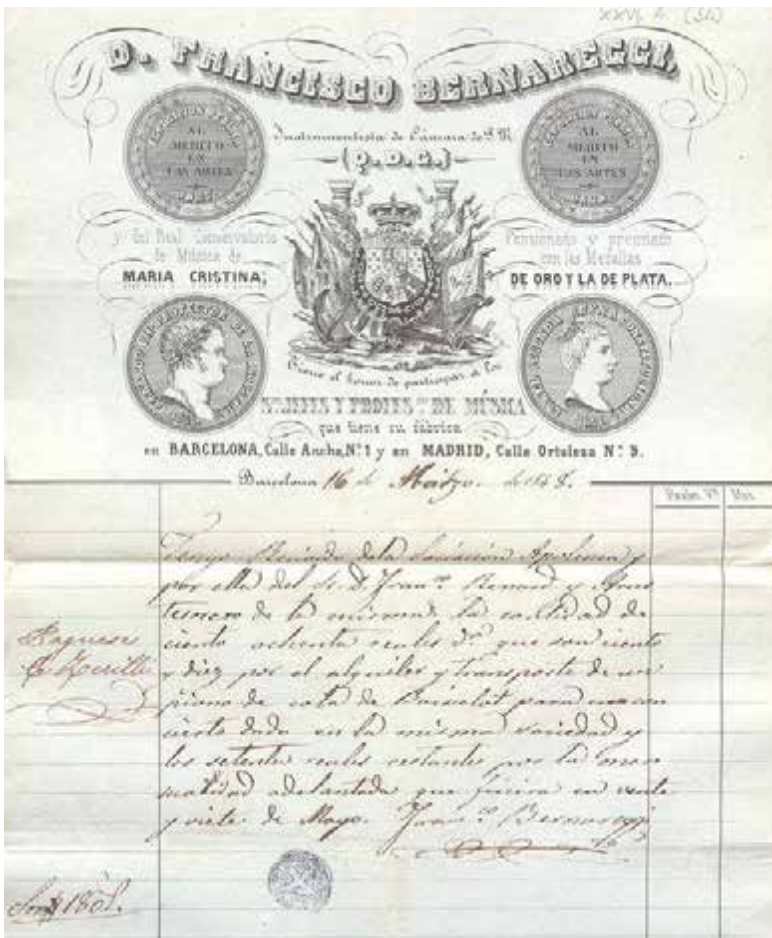 D. FRANCISCO BERNAREGGI,
Instrumentista de Cámara de S. M.
(Q.D.G.)
AL MERITO EN LAS ARTES
AL MERITO EN LAS ARTES
y del Real Conservatorio de Música de
MARIA CRISTINA,
Pensionado y premiado con las Medallas
DE ORO Y LA DE PLATA.
Tiene el honor de participar á los
S.res JEFES Y PROFES.res DE MÚSICA
que tiene su fábrica
en BARCELONA, Calle Ancha, N.º 1 y en MADRID, Calle Ortaleza N.º 3.
Barcelona 16 de Marzo de
Reales V.n Mrs.
Tengo Recivido de la Sociación Apolinea y
por ella del Sr. D. Fran.co Renard y
tesorero de la misma, la cantidad de
ciento ochenta reales v.n que son ciento
y diez por el alquiler y transporte de un
piano de cola de Boisselot para un con
cierto dado en la misma sociedad y
los setenta reales restantes por la men
sualidad adelantada que finira en veinte
y siete de Mayo. Fran.co Bernareggi
Paguese
Son 180 r.